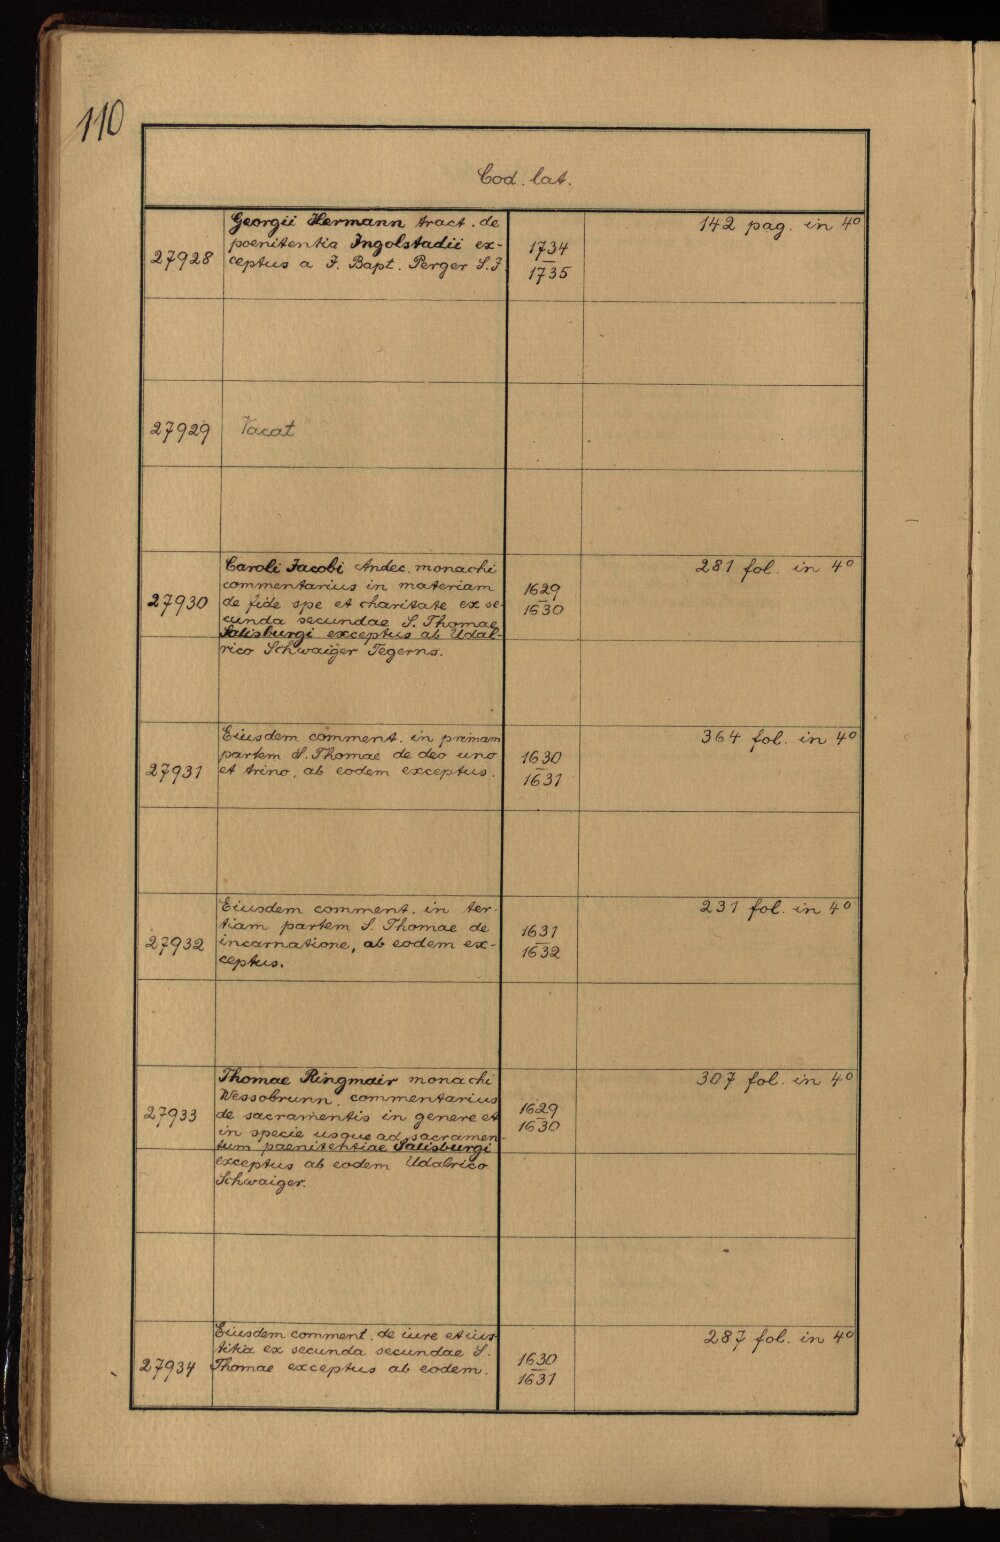 110
Cod. lat.
27928
Georgii Hermann tract. de
poenitentia Ingolstadii ex-
ceptus a J. Bapt. Perger S.J
1734
1735
142 pag. in 4°
27929
Vacat
27930
Caroli Jacobi Andec. monachi
commentarius in materiam
de fide spe et charitate ex se-
cunda secundae S. Thomae
Salisburgi exceptus ab Udal-
rico Schwaiger Tegerns.
1629
1630
281 fol. in 4°
27931
Eiusdem comment. in primam
partem S. Thomae de deo uno
et trino, ab eodem exceptus.
1630
1631
364 fol. in 4°
27932
Eiusdem comment. in ter-
tiam partem S. Thomae de
incarnatione, ab eodem ex-
ceptus.
1631
1632
231 fol. in 4°
27933
Thomae Ringmair monachi
Wessobrunn. commentarius
de sacramentis in genere et
in specie usque ad sacramen-
tum paenitentiae Salisburgi
exceptus ab eodem Udalrico
Schwaiger.
1629
1630
307 fol. in 4°
27934
Eiusdem comment. de iure et ius-
titia ex secunda secundae S.
Thomae exceptus ab eodem.
1630
1631
287 fol. in 4°